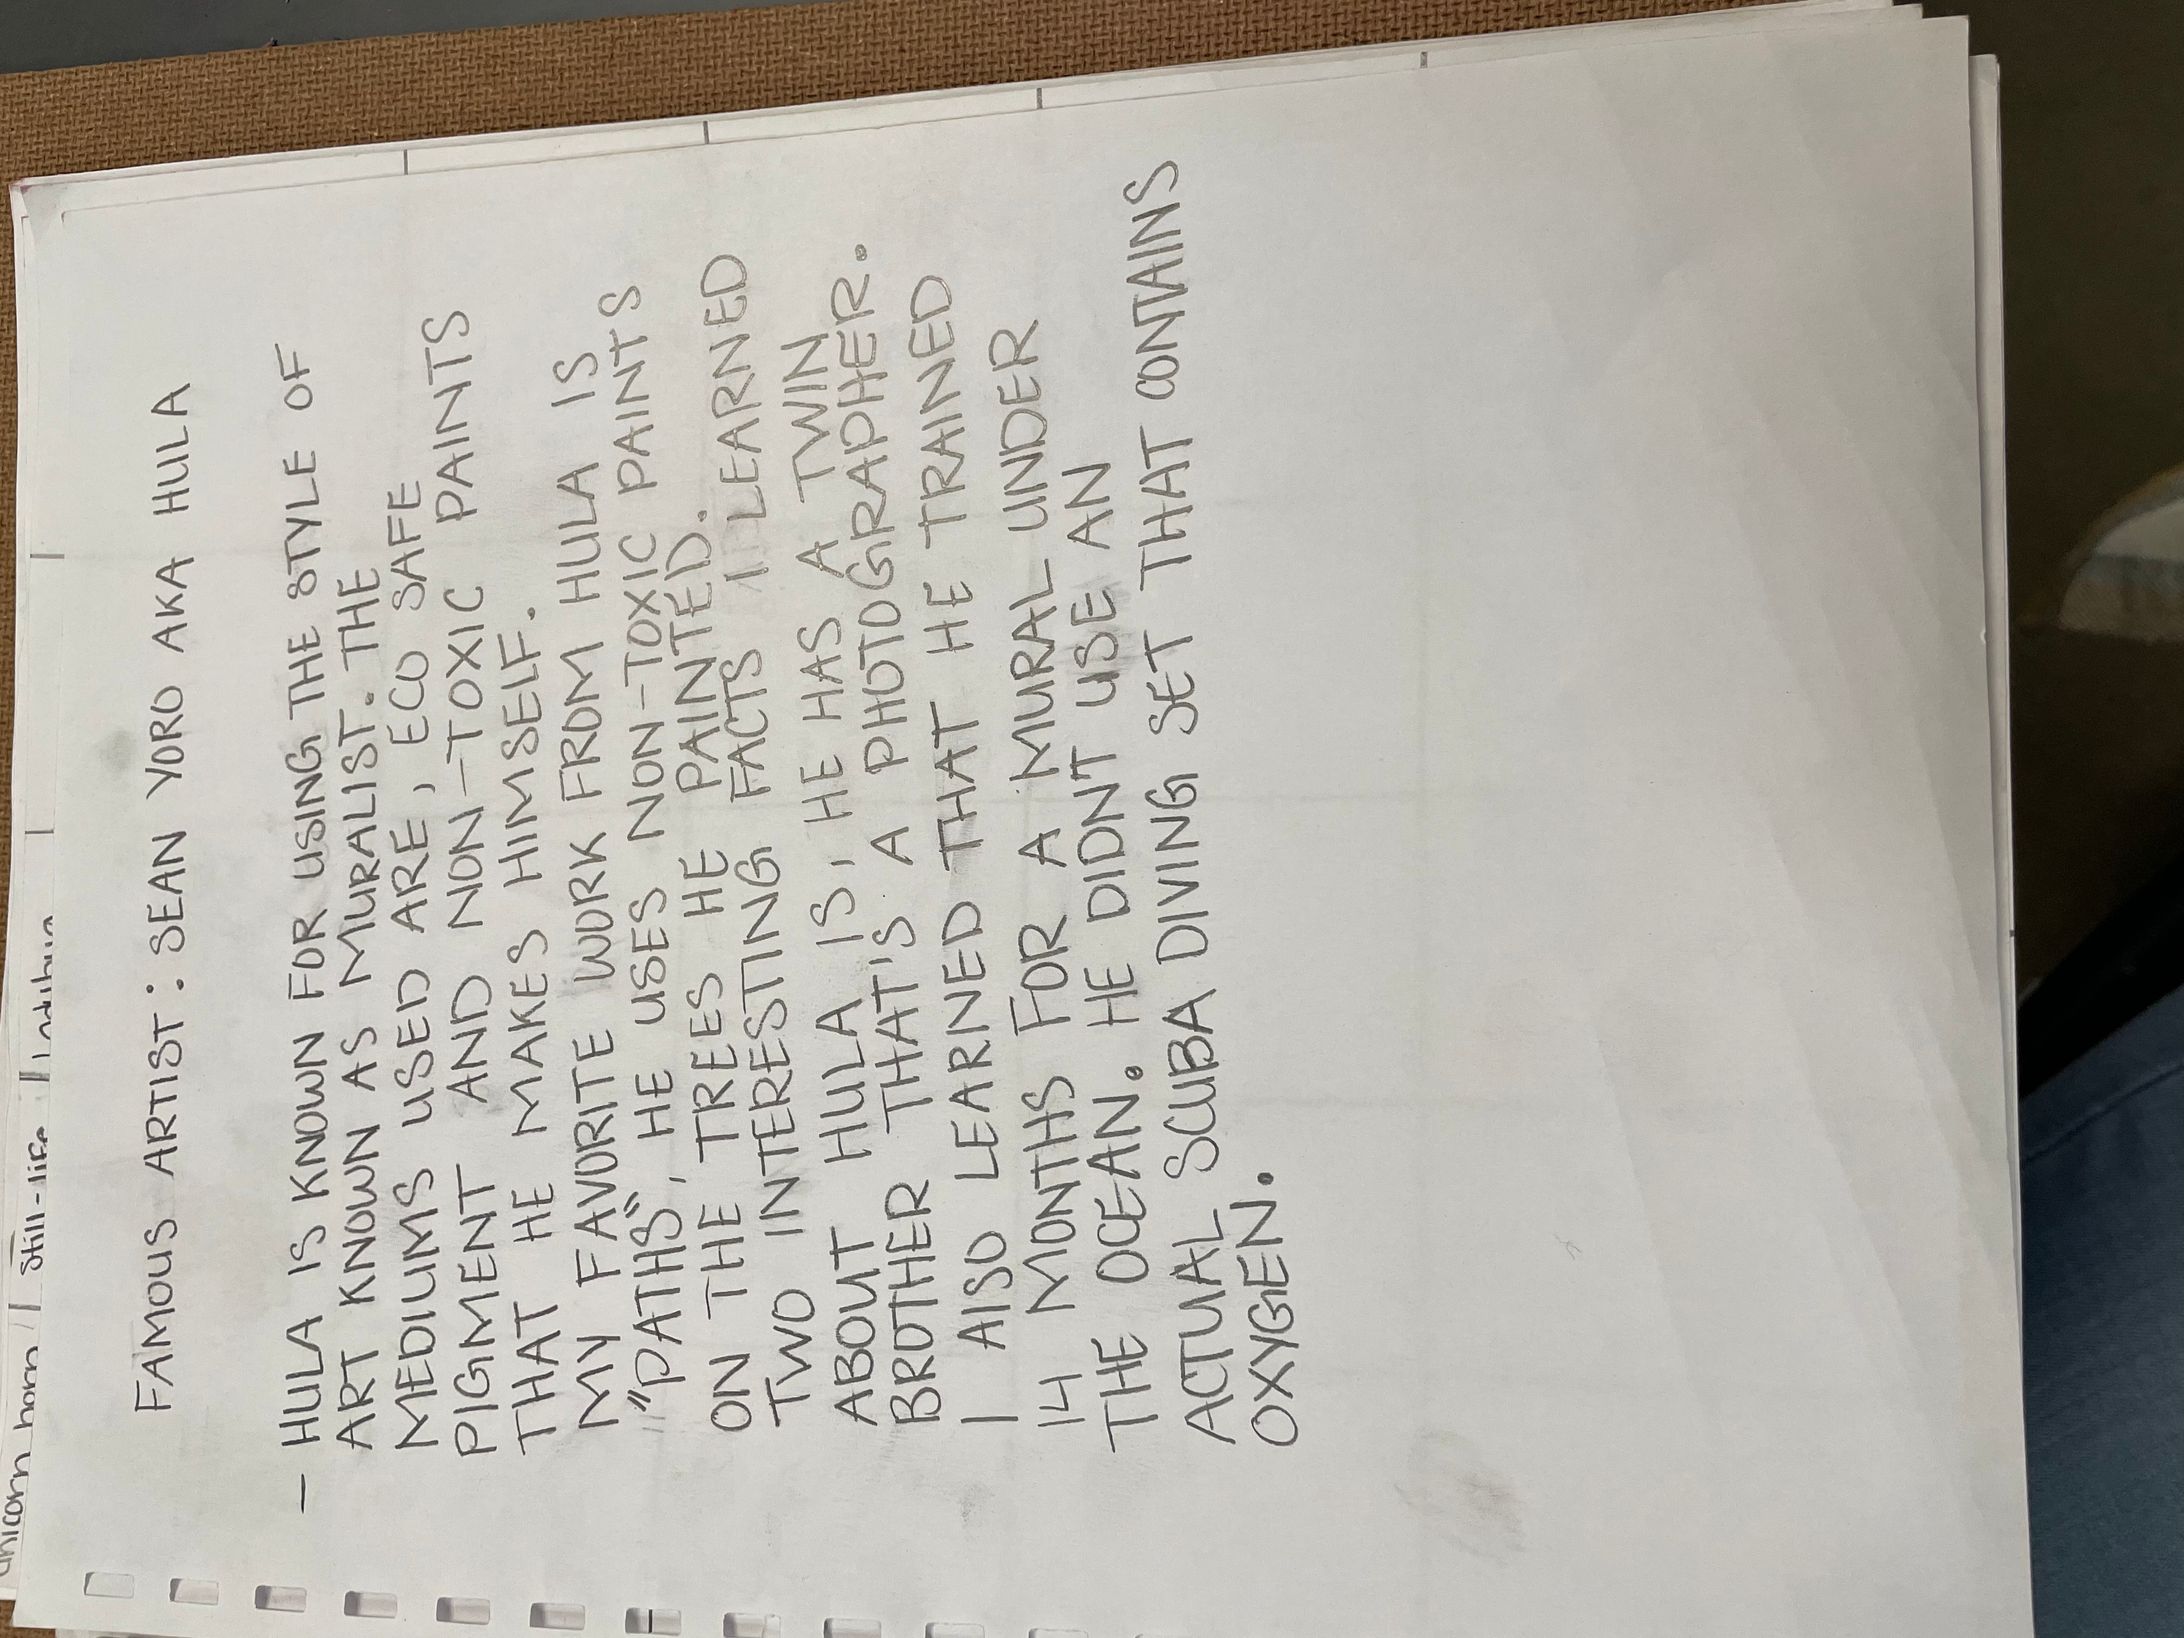 unicorn horn | still-life |
FAMOUS ARTIST: SEAN YORO AKA HULA
— HULA IS KNOWN FOR USING THE STYLE OF
ART KNOWN AS MURALIST. THE
MEDIUMS USED ARE, ECO SAFE
PIGMENT AND NON-TOXIC PAINTS
THAT HE MAKES HIMSELF.
MY FAVORITE WORK FROM HULA IS
"PATHS", HE USES NON-TOXIC PAINTS
ON THE TREES HE PAINTED.
TWO INTERESTING FACTS I LEARNED
ABOUT HULA IS, HE HAS A TWIN
BROTHER THAT'S A PHOTOGRAPHER.
I AlSO LEARNED THAT HE TRAINED
14 MONTHS FOR A MURAL UNDER
THE OCEAN. HE DIDNT USE AN
ACTUAL SCUBA DIVING SET THAT CONTAINS
OXYGEN.